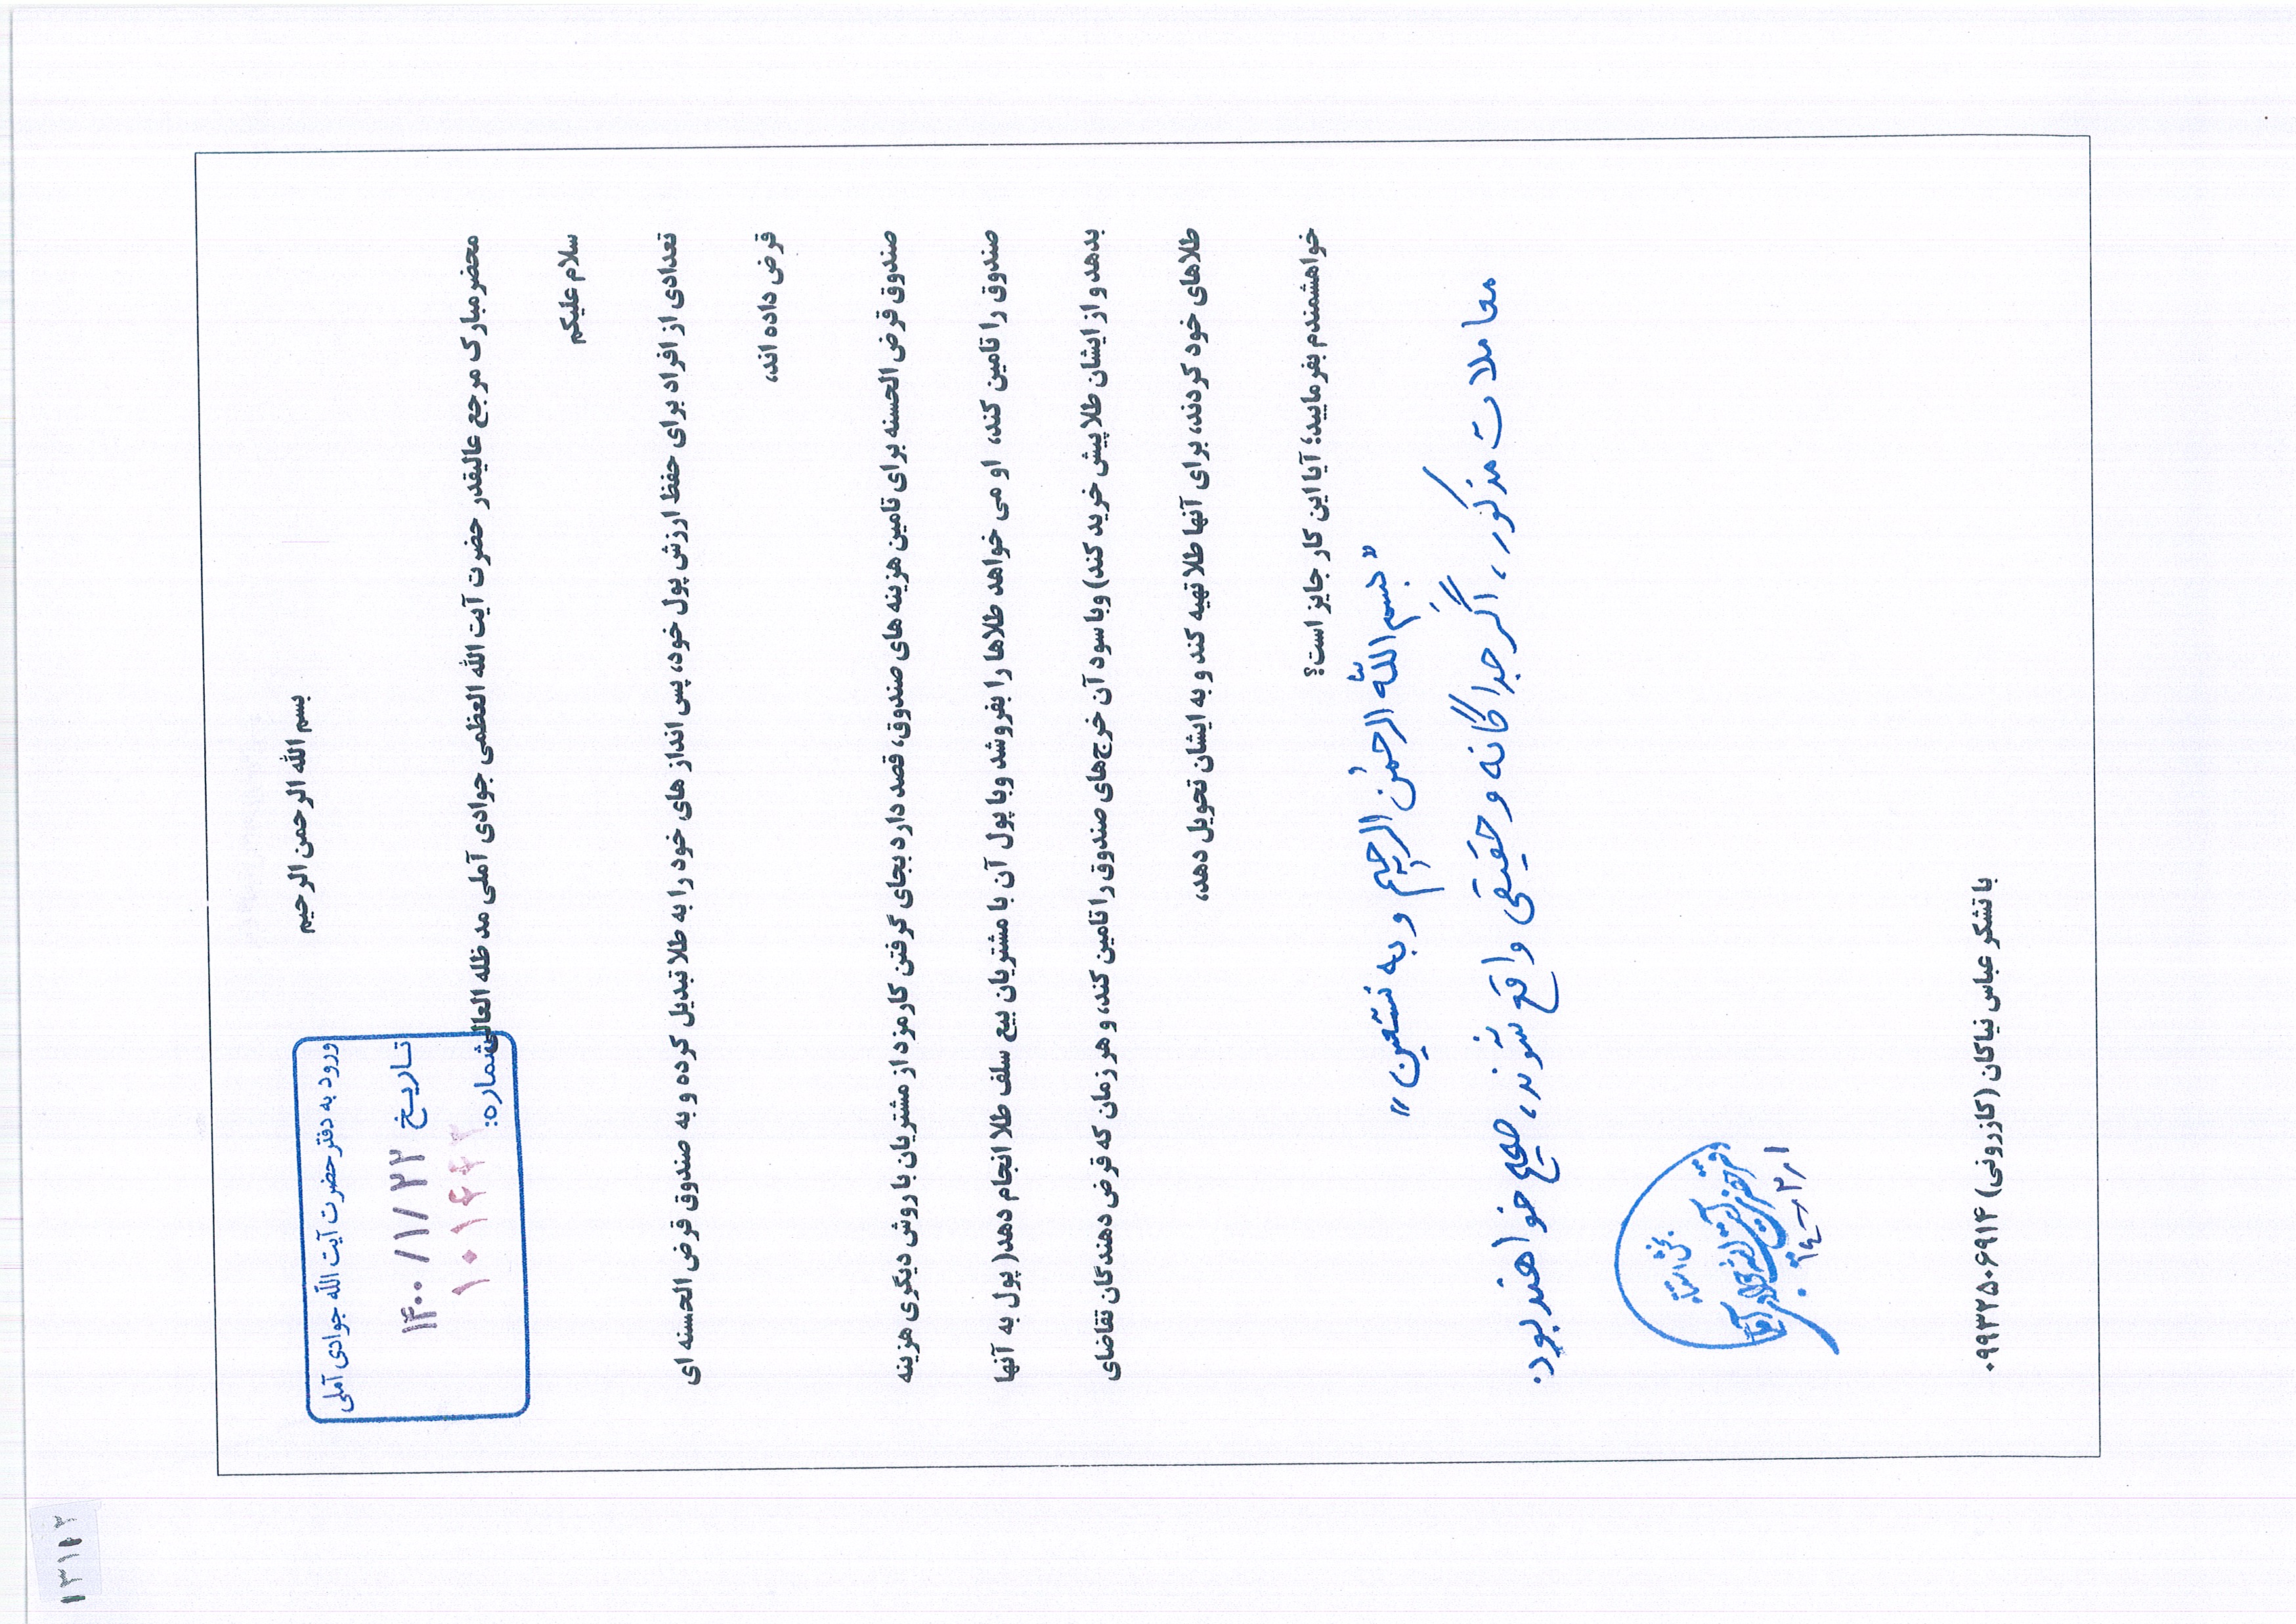 بسم الله الرحمن الرحیم
ورود به دفتر حضرت آیت الله جوادی آملی
تاریخ ۱۴۰۰/۱/۲۲
شماره:
محضر مبارک مرجع عالیقدر حضرت آیت الله العظمی جوادی آملی مد ظله العالی
سلام علیکم
تعدادی از افراد برای حفظ ارزش پول خود، پس انداز های خود را به طلا تبدیل کرده و به صندوق قرض الحسنه ای
قرض داده اند،
صندوق قرض الحسنه برای تامین هزینه های صندوق، قصد دارد بجای گرفتن کارمزد از مشتریان با روش دیگری هزینه
صندوق را تامین کند، او می خواهد طلاها را بفروشد وبا پول آن با مشتریان بیع سلف طلا انجام دهد( پول به آنها
بدهد و از ایشان طلا پیش خرید کند) وبا سود آن خرج‌های صندوق را تامین کند، و هر زمان که قرض دهندگان تقاضای
طلاهای خود کردند، برای آنها طلا تهیه کند و به ایشان تحویل دهد،
خواهشمندم بفرمایید؛ آیا این کار جایز است؟
"بسم الله الرحمن الرحیم و به نستعین"
معاملات مذکور، اگر جداگانه و حقیقی واقع شوند، صحیح خواهند بود.
۱۴۰۰/۲/۱
با تشکر عباس نیاکان (کازرونی) ۰۹۹۳۲۵۰۶۹۱۴